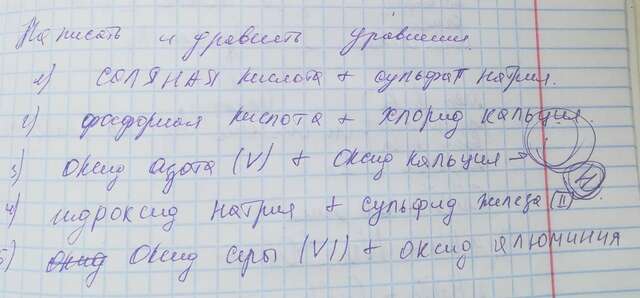 Написать и уравнять уравнения.
1) СОЛЯНАЯ кислота + сульфат натрия.
2) фосфорная кислота + хлорид кальция.
3) оксид азота (V) + оксид кальция →
4) гидроксид натрия + сульфид железа (II)
5) оксид серы (VI) + оксид алюминия